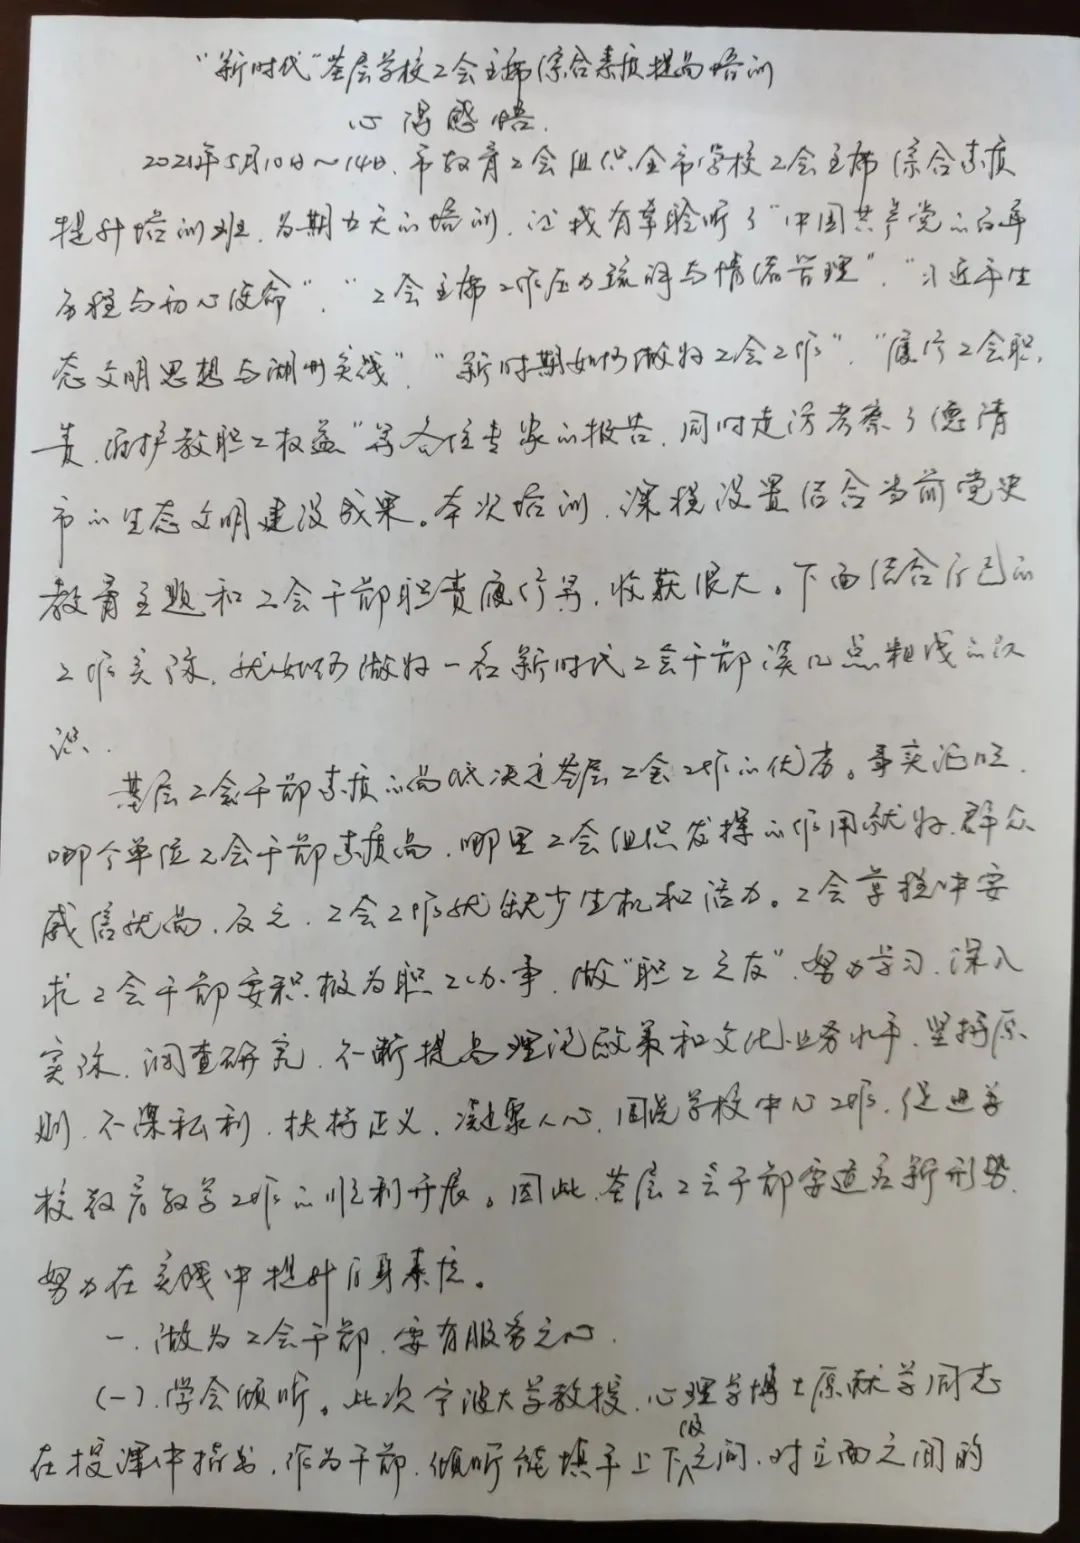 “新时代”基层学校工会主席综合素质提高培训
心得感悟.
2021年5月10日～14日.市教育工会组织全市学校工会主席综合素质
提升培训班.为期五天的培训,让我有幸聆听了“中国共产党的百年
历程与初心使命”.“工会主席工作压力疏解与情绪管理”.“习近平生
态文明思想与湖州实践”.“新时期如何做好工会工作”.“履行工会职
责.维护教职工权益”等各位专家的报告.同时走访考察了德清
市的生态文明建设成果。本次培训.课程设置结合当前党史
教育主题和工会干部职责履行等.收获很大。下面结合自己的
工作实际.就如何做好一名新时代工会干部谈几点粗浅的认
识.
基层工会干部素质的高低决定基层工会工作的优劣。事实证明.
哪个单位工会干部素质高.哪里工会组织发挥的作用就好.群众
威信就高.反之.工会工作就缺少生机和活力。工会章程中要
求工会干部要积极为职工办事.做“职工之友”.努力学习.深入
实际.调查研究.不断提高理论政策和文化业务水平.坚持原
则.不谋私利.扶持正义.凝聚人心.围绕学校中心工作.促进学
校教育教学工作的顺利开展。因此.基层工会干部要适应新形势.
努力在实践中提升自身素质。
一.做为工会干部.要有服务之心.
(一).学会倾听。此次宁波大学教授.心理学博士原献学同志
在授课中指出.作为干部.倾听能填平上下级之间.对立面之间的